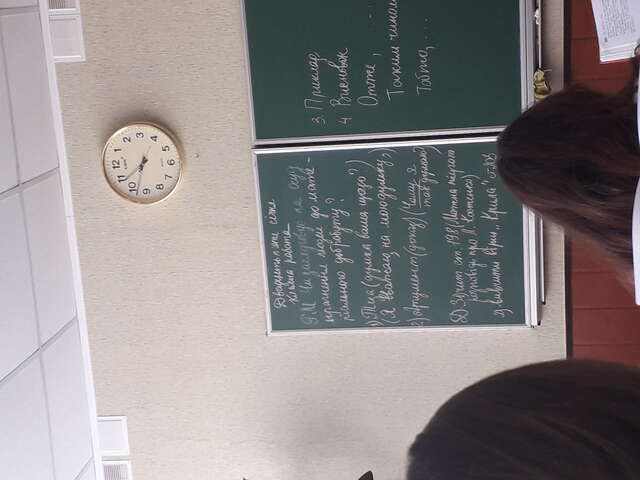 12
1
2
3
4
5
6
7
8
9
10
11
Двадцять п'яте січня
Класна робота
Р.М. Чи заслуговує на осуд
прагнення людей до мате-
ріального добробуту?
1) Теза (думка ваша щодо?)
(Я вважаю, на мою думку,)
2) Аргумент (доказ) (Чому я
так думаю)
Д.З. Вчит. ст. 198 (Можна підгот.
розповідь про Л. Костенко)
вивчити вірш „Крила" ст. 203
3. Приклад.
4. Висновок
Отже, ...
Таким чином
Тобто, ...